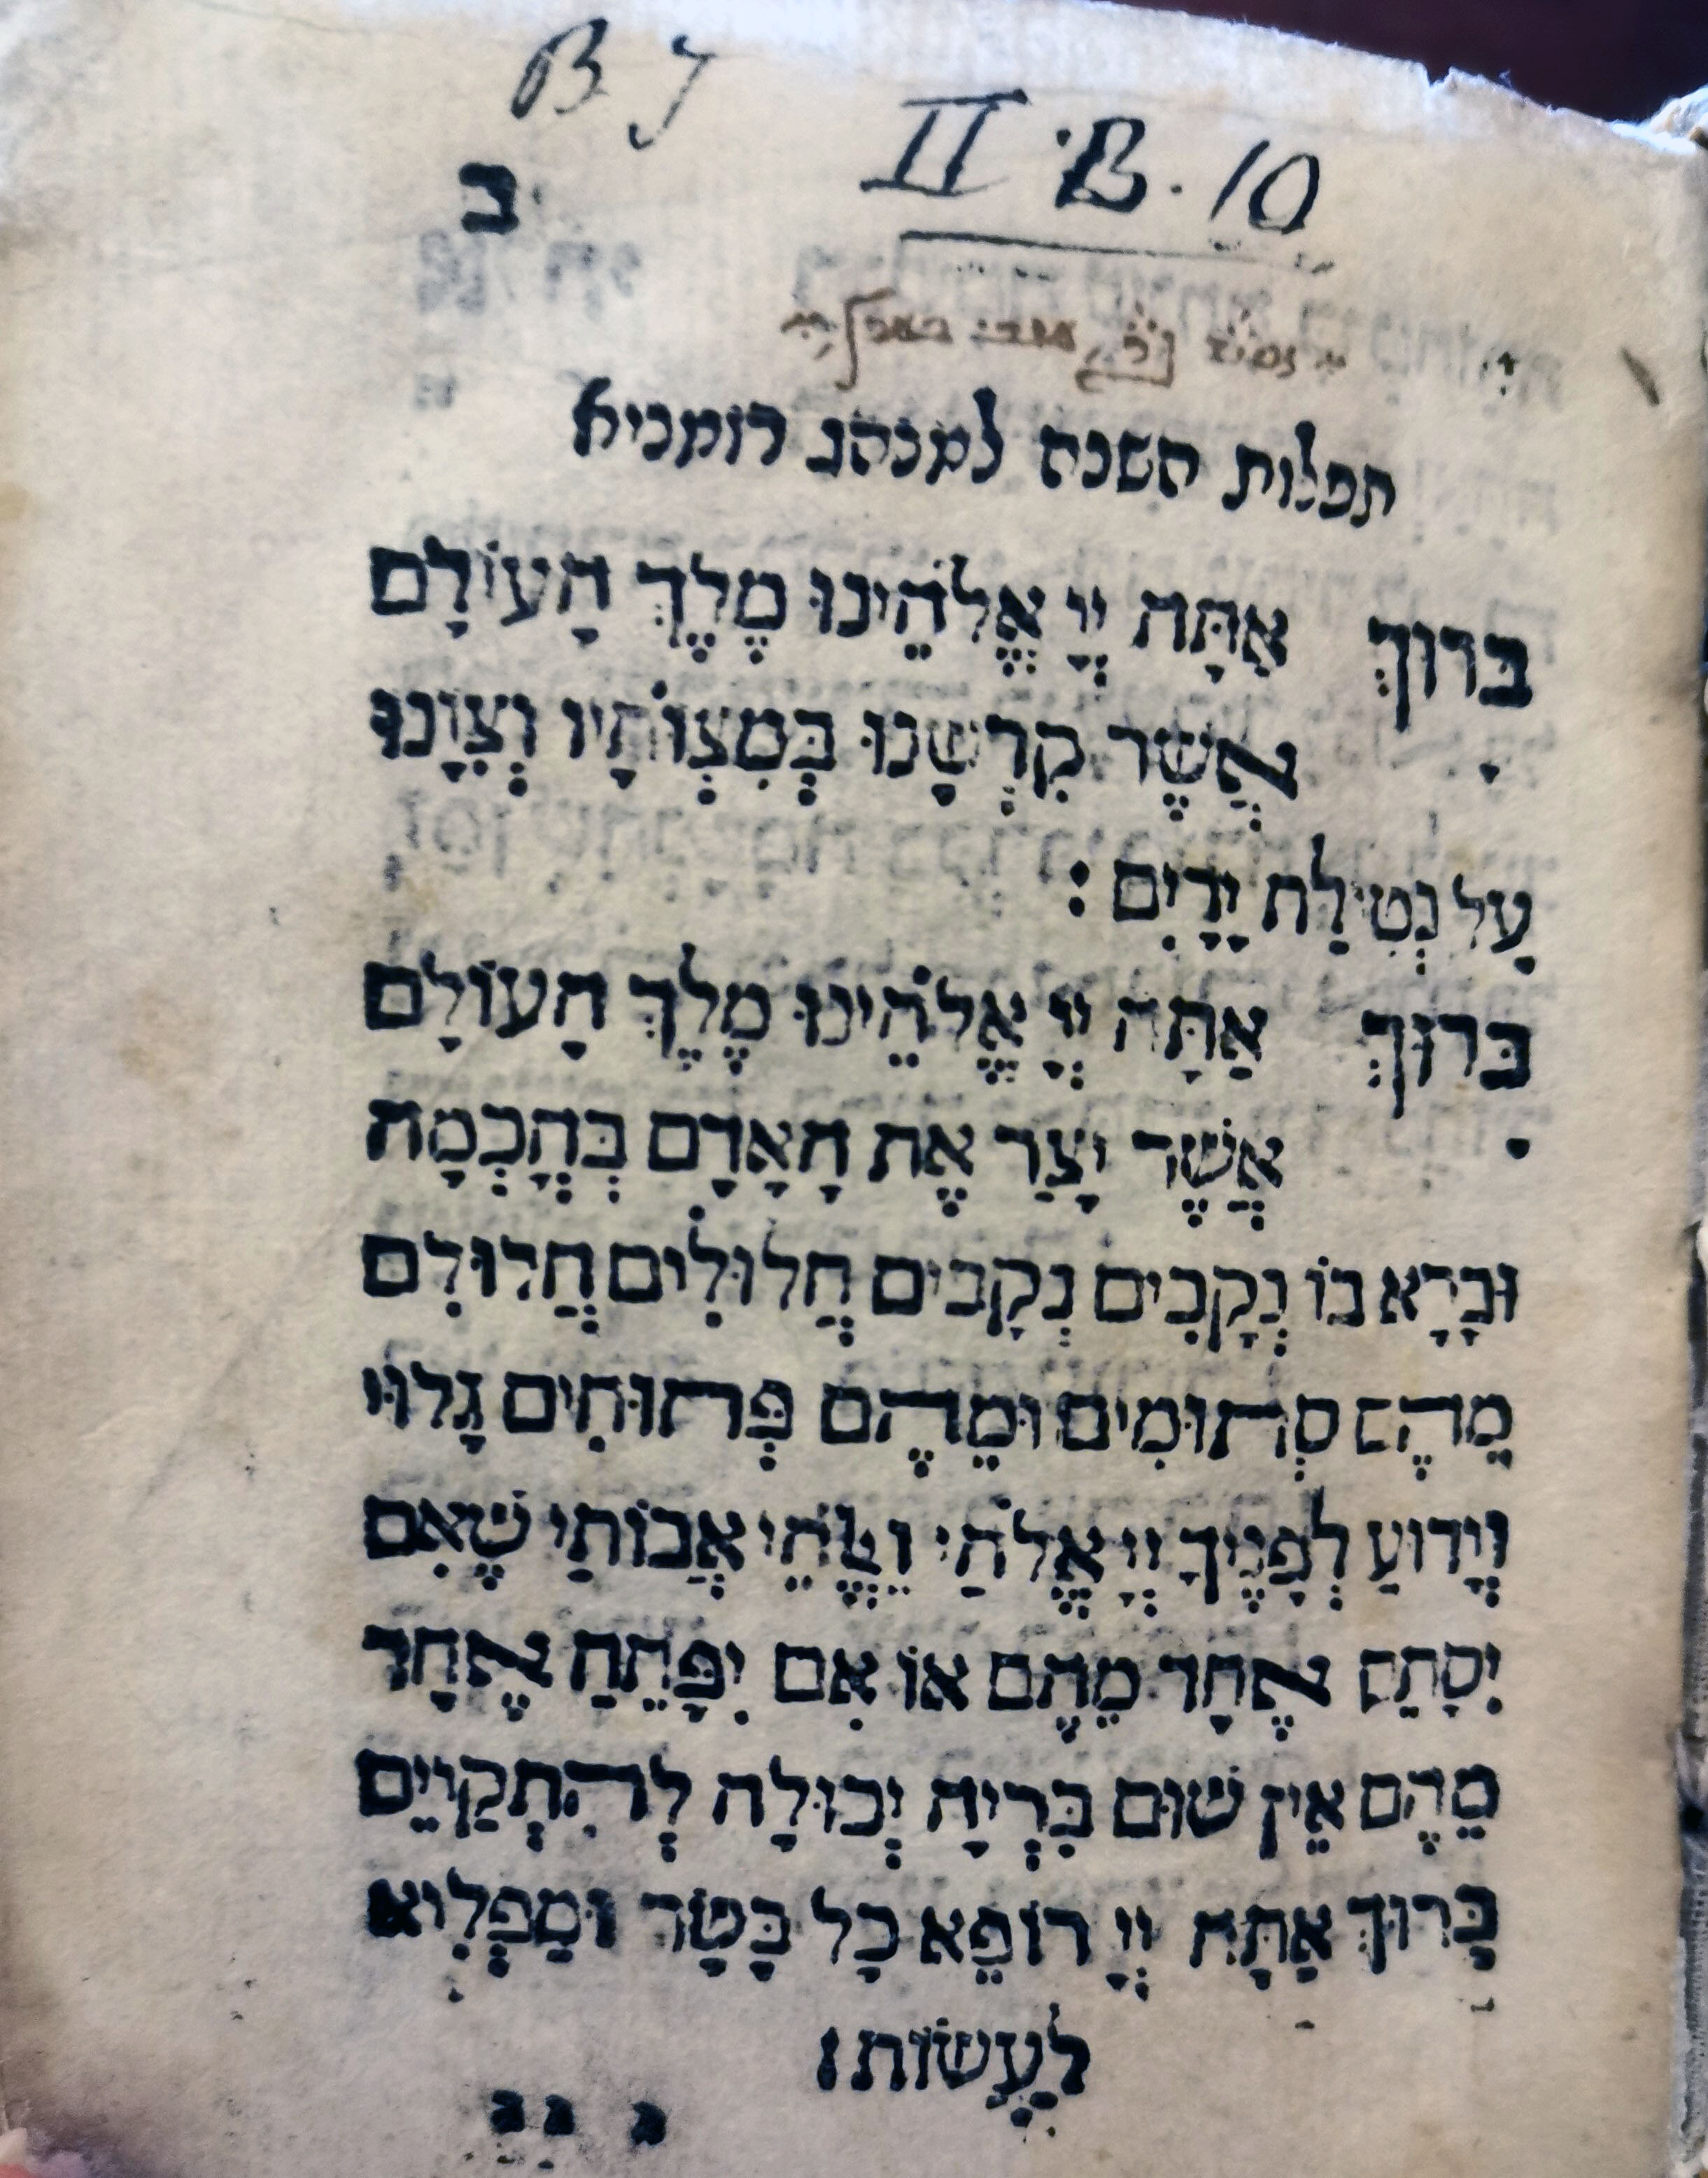 B J
II B. 10
ב
תפלות השנה למנהג רומניא
בָּרוּךְ אַתָּה יְיָ אֱלֹהֵינוּ מֶלֶךְ הָעוֹלָם
אֲשֶׁר קִדְשָׁנוּ בְּמִצְוֹתָיו וְצִוָנוּ
עַל נְטִילַת יָדָיִם :
בָּרוּךְ אַתָּה יְיָ אֱלֹהֵינוּ מֶלֶךְ הָעוֹלָם
אֲשֶׁר יָצַר אֶת הָאָדָם בְּחָכְמָה
וּבָרָא בוֹ נְקָבִים נְקָבִים חֲלוּלִים חֲלוּלִם
מֵהֶם סְתוּמִים וּמֵהֶם פְּתוּחִים גָלוּי
וְיָדוּעַ לְפָנֶיךָ יְיָ אֱלֹהַי וֵאלֹהֵי אֲבוֹתַי שֶׁאִם
יִסָתֵם אֶחָד מֵהֶם אוֹ אִם יִפָּתֵחַ אֶחָד
מֵהֶם אֵין שׁוּם בִּרְיָה יְכוּלָה לְהִתְקַיֵים
בָּרוּךְ אַתָּה יְיָ רוֹפֵא כָל בָּשָׂר וּמַפְלִיא
לַעֲשׂוֹת׃